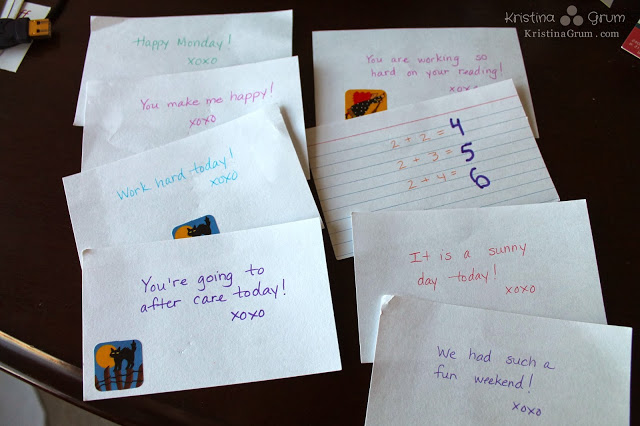 Kristina Grum
KristinaGrum.com
Happy Monday!
xoxo
You make me happy!
xoxo
Work hard today!
xoxo
You're going to
after care today!
xoxo
You are working so
hard on your reading!
xoxo
2 + 2 = 4
2 + 3 = 5
2 + 4 = 6
It is a sunny
day today!
xoxo
We had such a
fun weekend!
xoxo